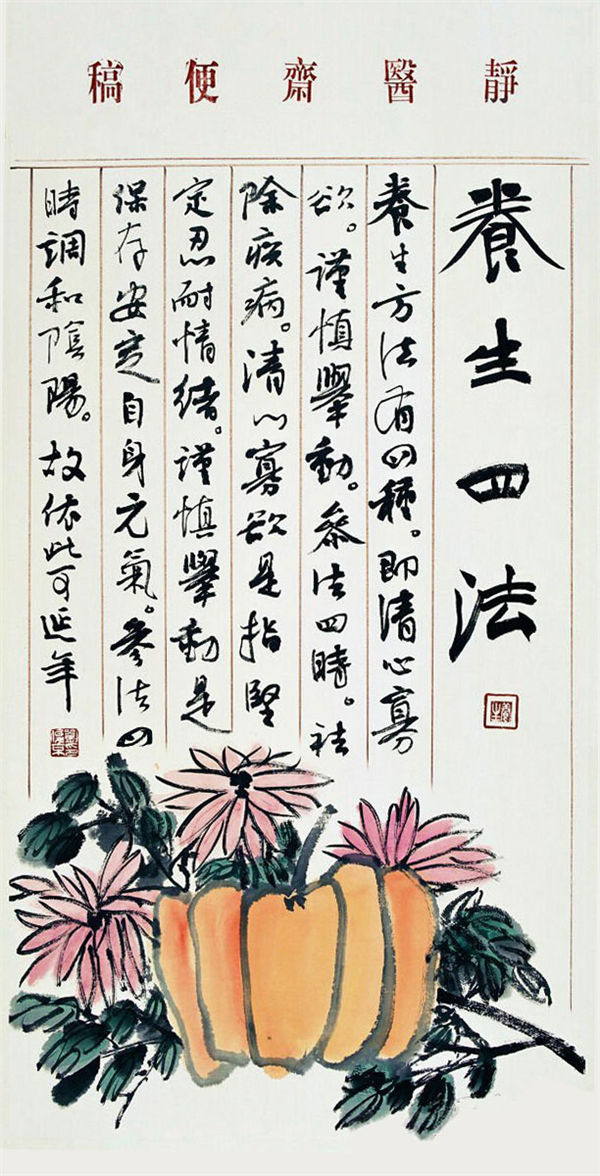 靜醫齋便稿
養生四法
養生方法有四種。即清心寡
欲。謹慎舉動。參法四時。祛
除疾病。清心寡欲是指堅
定忍耐情緒。謹慎舉動是
保存安定自身元氣。參法四
時調和陰陽。故依此可延年